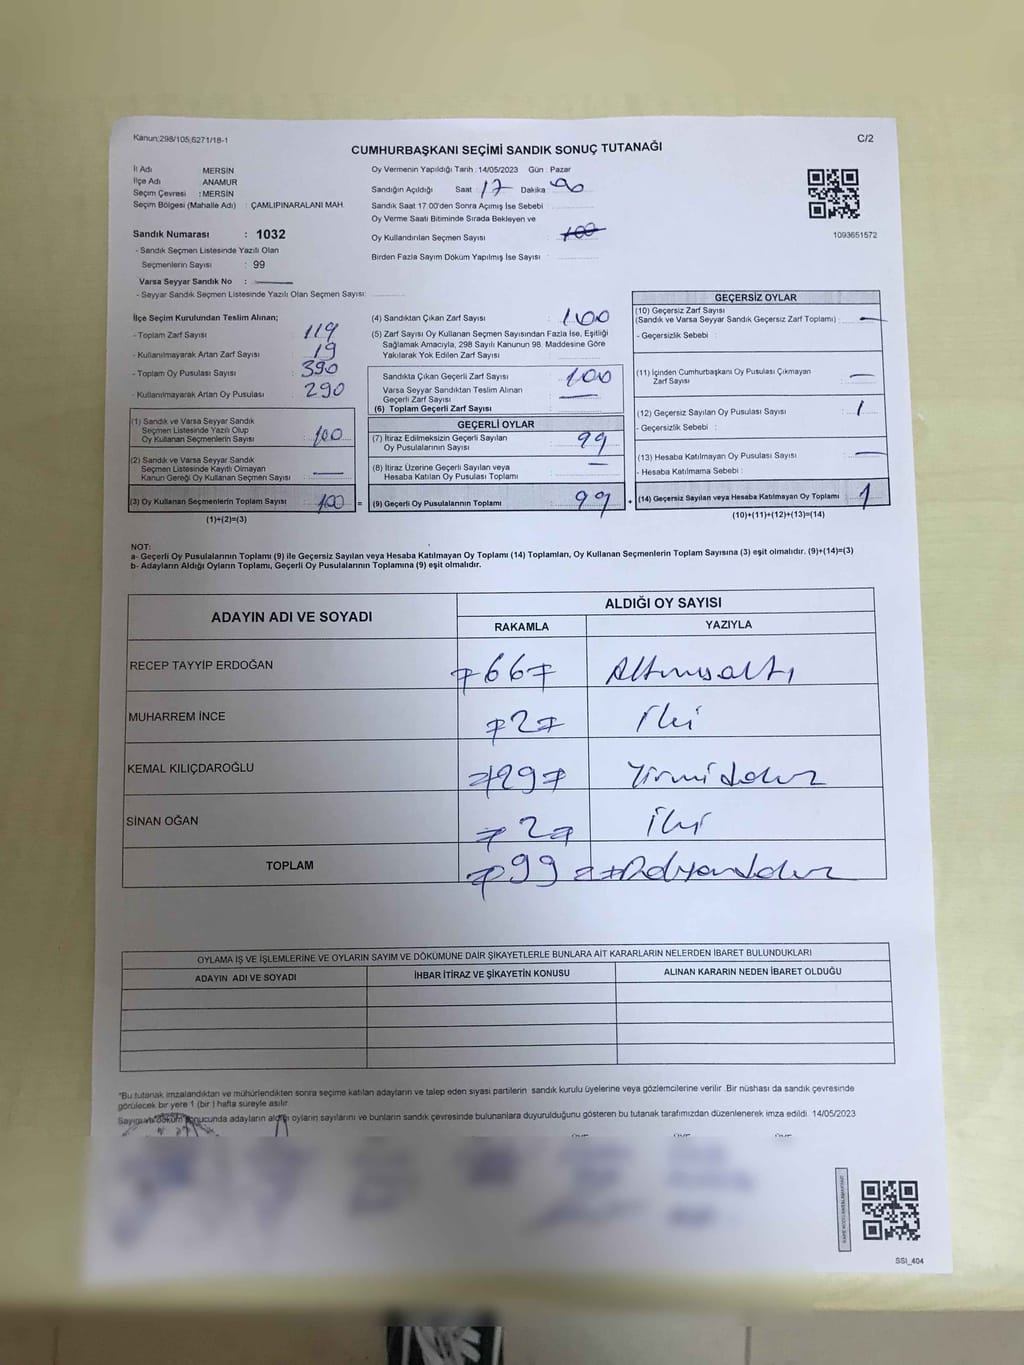 Kanun:298/105,6271/18-1
C/2
CUMHURBAŞKANI SEÇİMİ SANDIK SONUÇ TUTANAĞI
İl Adı MERSİN
İlçe Adı ANAMUR
Seçim Çevresi : MERSİN
Seçim Bölgesi (Mahalle Adı) : ÇAMLIPINARALANI MAH.
Sandık Numarası : 1032
- Sandık Seçmen Listesinde Yazılı Olan
Seçmenlerin Sayısı : 99
Varsa Seyyar Sandık No :
- Seyyar Sandık Seçmen Listesinde Yazılı Olan Seçmen Sayısı:
Oy Vermenin Yapıldığı Tarih : 14/05/2023 Gün : Pazar
Sandığın Açıldığı Saat 17 Dakika
Sandık Saat 17:00'den Sonra Açımış İse Sebebi
Oy Verme Saati Bitiminde Sırada Bekleyen ve
Oy Kullandırılan Seçmen Sayısı : 100
Birden Fazla Sayım Döküm Yapılmış İse Sayısı :
1093651572
İlçe Seçim Kurulundan Teslim Alınan;
- Toplam Zarf Sayısı 119
- Kullanılmayarak Artan Zarf Sayısı : 19
- Toplam Oy Pusulası Sayısı : 390
- Kullanılmayarak Artan Oy Pusulası : 290
(1) Sandık ve Varsa Seyyar Sandık
Seçmen Listesinde Yazılı Olup
Oy Kullanan Seçmenlerin Sayısı : 100
(2) Sandık ve Varsa Seyyar Sandık
Seçmen Listesinde Kayıtlı Olmayan
Kanun Gereği Oy Kullanan Seçmen Sayısı :
(3) Oy Kullanan Seçmenlerin Toplam Sayısı : 100 =
(1)+(2)=(3)
(4) Sandıktan Çıkan Zarf Sayısı : 100
(5) Zarf Sayısı Oy Kullanan Seçmen Sayısından Fazla İse, Eşitliği
Sağlamak Amacıyla, 298 Sayılı Kanunun 98. Maddesine Göre
Yakılarak Yok Edilen Zarf Sayısı :
Sandıkta Çıkan Geçerli Zarf Sayısı : 100
Varsa Seyyar Sandıktan Teslim Alınan
Geçerli Zarf Sayısı :
(6) Toplam Geçerli Zarf Sayısı :
GEÇERLİ OYLAR
(7) İtiraz Edilmeksizin Geçerli Sayılan
Oy Pusulalarının Sayısı : 99
(8) İtiraz Üzerine Geçerli Sayılan veya
Hesaba Katılan Oy Pusulası Toplamı :
(9) Geçerli Oy Pusulalarının Toplamı : 99 +
GEÇERSİZ OYLAR
(10) Geçersiz Zarf Sayısı
(Sandık ve Varsa Seyyar Sandık Geçersiz Zarf Toplamı) :
- Geçersizlik Sebebi :
(11) İçinden Cumhurbaşkanı Oy Pusulası Çıkmayan
Zarf Sayısı :
(12) Geçersiz Sayılan Oy Pusulası Sayısı : 1
- Geçersizlik Sebebi :
(13) Hesaba Katılmayan Oy Pusulası Sayısı :
- Hesaba Katılmama Sebebi :
(14) Geçersiz Sayılan veya Hesaba Katılmayan Oy Toplamı : 1
(10)+(11)+(12)+(13)=(14)
NOT:
a- Geçerli Oy Pusulalarının Toplamı (9) ile Geçersiz Sayılan veya Hesaba Katılmayan Oy Toplamı (14) Toplamları, Oy Kullanan Seçmenlerin Toplam Sayısına (3) eşit olmalıdır. (9)+(14)=(3)
b- Adayların Aldığı Oyların Toplamı, Geçerli Oy Pusulalarının Toplamına (9) eşit olmalıdır.
ADAYIN ADI VE SOYADI
ALDIĞI OY SAYISI
RAKAMLA YAZIYLA
RECEP TAYYİP ERDOĞAN =66= Altmışaltı
MUHARREM İNCE =2= iki
KEMAL KILIÇDAROĞLU =29= Yirmidokuz
SİNAN OĞAN =2= iki
TOPLAM =99= Doksandokuz
OYLAMA İŞ VE İŞLEMLERİNE VE OYLARIN SAYIM VE DÖKÜMÜNE DAİR ŞİKAYETLERLE BUNLARA AİT KARARLARIN NELERDEN İBARET BULUNDUKLARI
ADAYIN ADI VE SOYADI İHBAR İTİRAZ VE ŞİKAYETİN KONUSU ALINAN KARARIN NEDEN İBARET OLDUĞU
"Bu tutanak imzalandıktan ve mühürlendikten sonra seçime katılan adayların ve talep eden siyasi partilerin sandık kurulu üyelerine veya gözlemcilerine verilir .Bir nüshası da sandık çevresinde
görülecek bir yere 1 (bir ) hafta süreyle asılır.
Sayım ve döküm sonucunda adayların aldığı oyların sayılarını ve bunların sandık çevresinde bulunanlara duyurulduğunu gösteren bu tutanak tarafımızdan düzenlenerek imza edildi. 14/05/2023
SSI_404